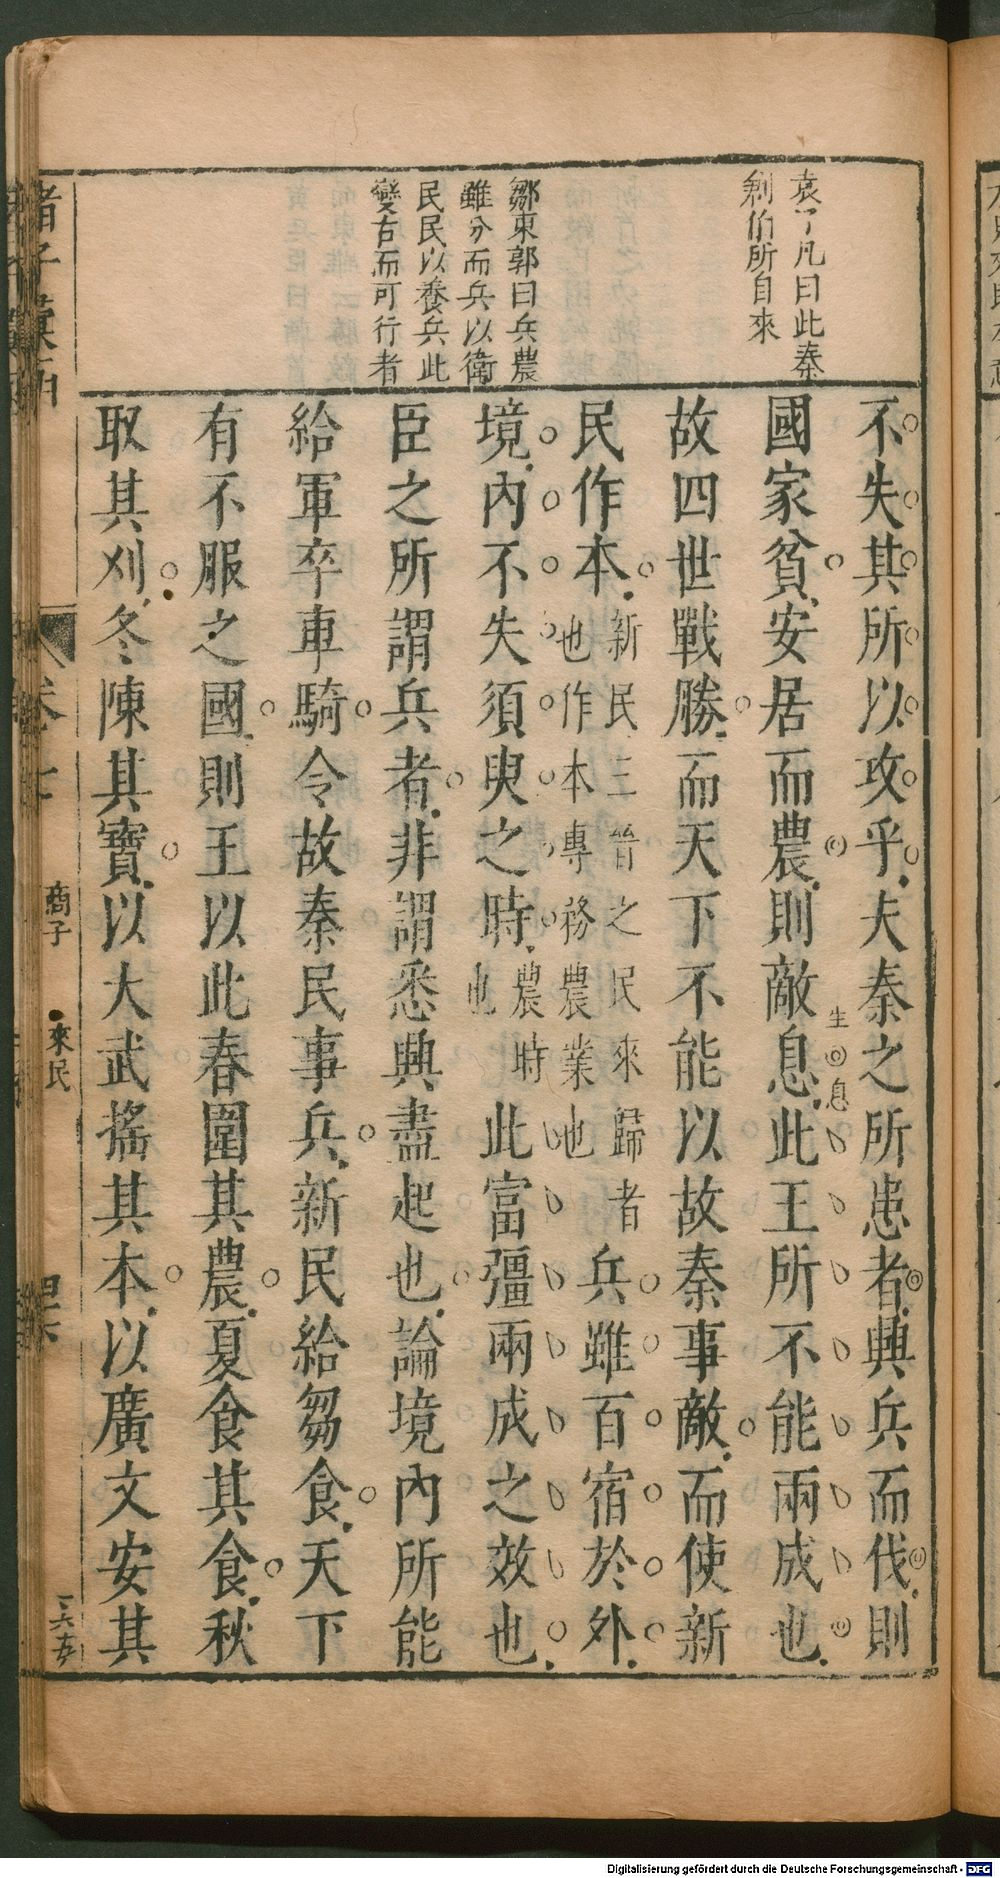 袁了凡曰此秦
剏伯所自來
鄒東郭曰兵農
雖分而兵以衛
民民以養兵此
變古而可行者
不失其所以攻乎夫秦之所患者興兵而伐則
國家貧安居而農則敵息此王所不能兩成也
生息
故四世戰勝而天下不能以故秦事敵而使新
民作本新民三晉之民來歸者也作本專務農業也兵雖百宿於外
境內不失須臾之時農時也此富彊兩成之效也
臣之所謂兵者非謂悉興盡起也論境內所能
給軍卒車騎令故秦民事兵新民給芻食天下
有不服之國則王以此春圍其農夏食其食秋
取其刈冬陳其寶以大武搖其本以廣文安其
諸子彙函 卷七 商子 來民
Digitalisierung gefördert durch die Deutsche Forschungsgemeinschaft - DFG